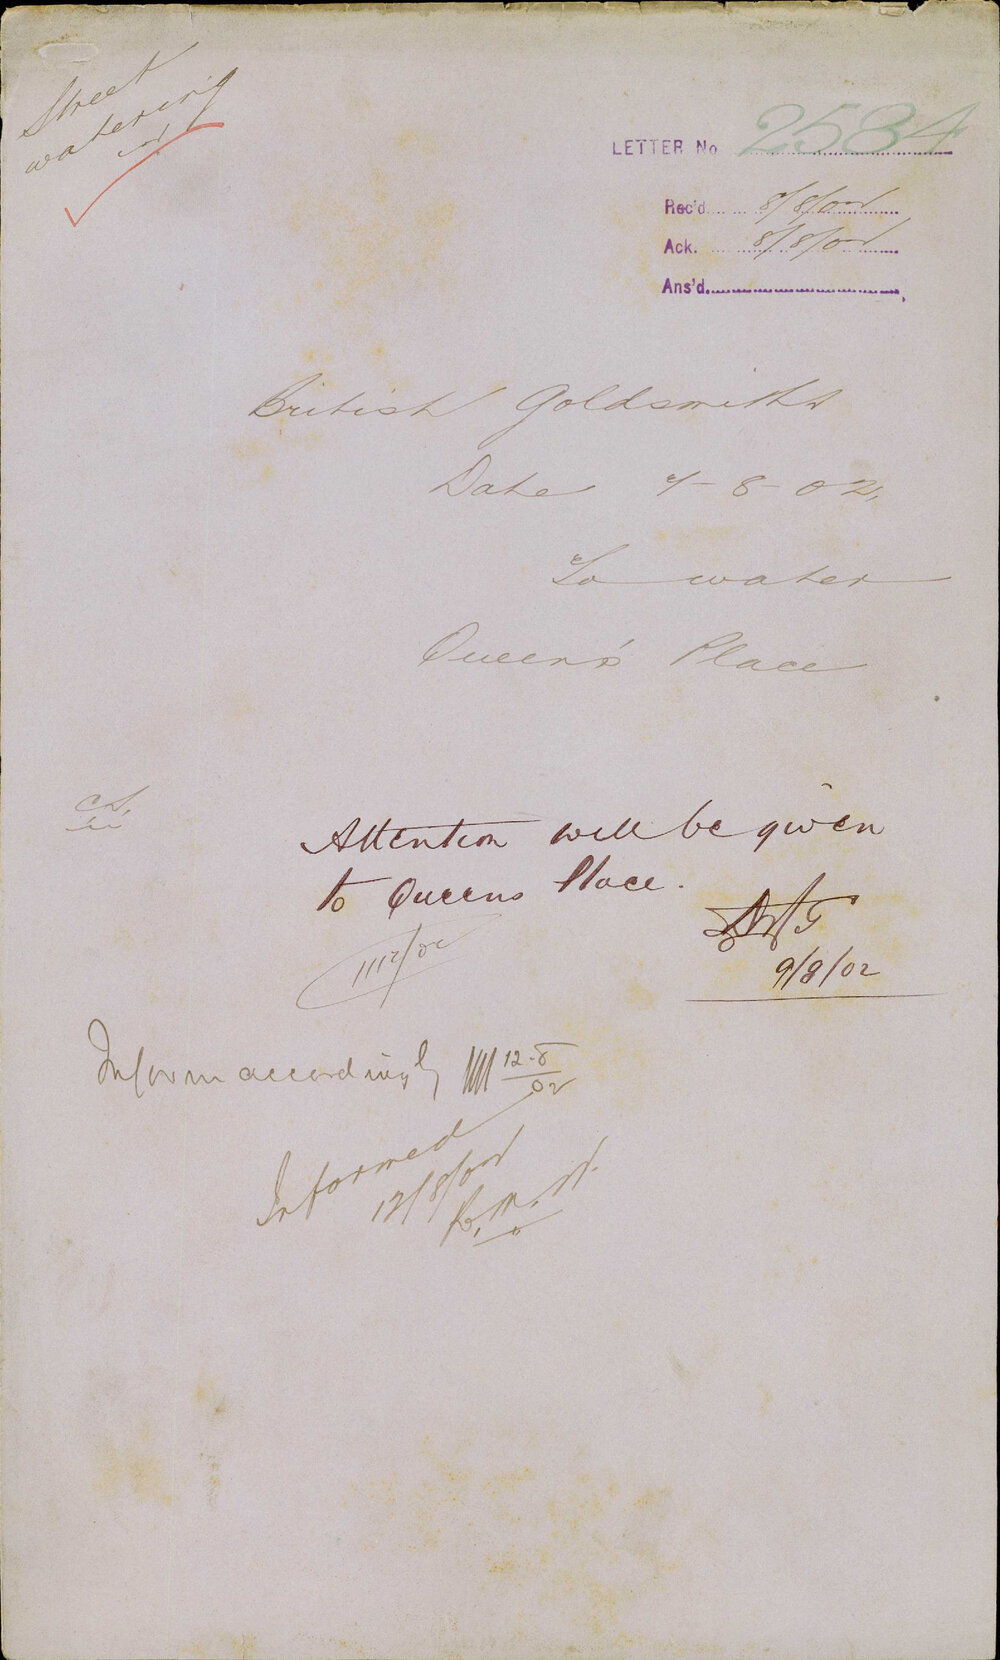 Street
watering
LETTER No 2584
Rec'd 8/8/02
Ack. 8/8/02
Ans'd
British Goldsmiths
Date 7-8-02.
To water
Queen's Place
Attention will be given
to Queens Place.
9/8/02
Inform accordingly 12-8
02
Informed
12/8/02